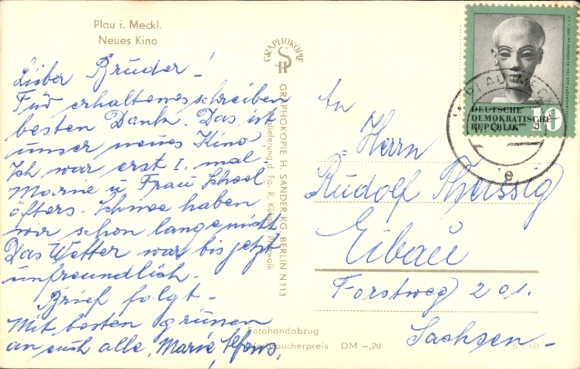 Plau i. Meckl.
Neues Kino
Lieber Bruder!
Für erhaltenes schreiben
besten Dank. Das ist
unser neues Kino
Ich war erst 1. mal
u Frau
öfters. Schnee haben
wir schon lange nicht
Das Wetter war bis jetzt
unfreundlich.
Brief folgt.
Mit besten grüssen
an euch alle, Marie, Alfons,
GRAPHOKOPIE
GRAPHOKOPIE H. SANDER KG, BERLIN N 113
Fotohandabzug
Verbraucherpreis DM -,20
DEUTSCHE
DEMOKRATISCHE
REPUBLIK
10
e
An
Herrn
Rudolf
Eibau
Forstweg 201.
Sachsen